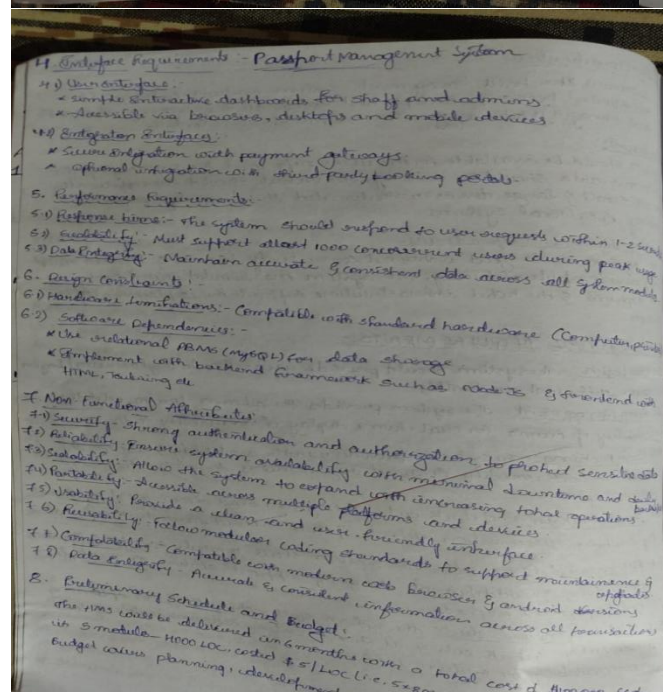 4. Interface Requirements :- Passport Management System
4.1) User Interface:
* Simple interactive dashboards for staff and admins.
* Accessible via browsers, desktops and mobile devices
4.2) Integration Interfaces:
* Secure integration with payment gateways.
* optional integration with third-party booking portals.
5. Performance Requirements:
5.1) Response times:- The system should respond to user requests within 1-2 seconds
5.2) Scalability:- Must support atleast 1000 concurrent users during peak usage
5.3) Data Integrity:- Maintain accurate & consistent data across all system modules
6. Design Constraints :-
6.1) Hardware Limitations:- Compatible with standard hardware (Computer,
6.2) Software Dependencies:-
* Use relational DBMS (MySQL) for data storage
* Implement with backend framework such as Node JS & frontend with
HTML, etc
7. Non Functional Attributes
7.1) Security- Strong authentication and authorization to protect sensitive data
7.2) Reliability: system availability with minimal downtime and data
7.3) Scalability: Allow the system to expand with increasing total operations.
7.4) Portability- Accessible across multiple platforms and devices
7.5) Usability: Provide a clean and user friendly interface.
7.6) Reusability: Follow modular coding standards to support maintainence & upgrades
7.7) Compatability- Compatible with modern web browser & android versions
7.8) Data Integrity- Accurate & consistent information across all transactions
8. Preliminary Schedule and Budget:
The HMS could be delivered in 6 months with a total cost of
in 5 module- LOC. costed $5/LOC (i.e. 5x
Budget covers planning,